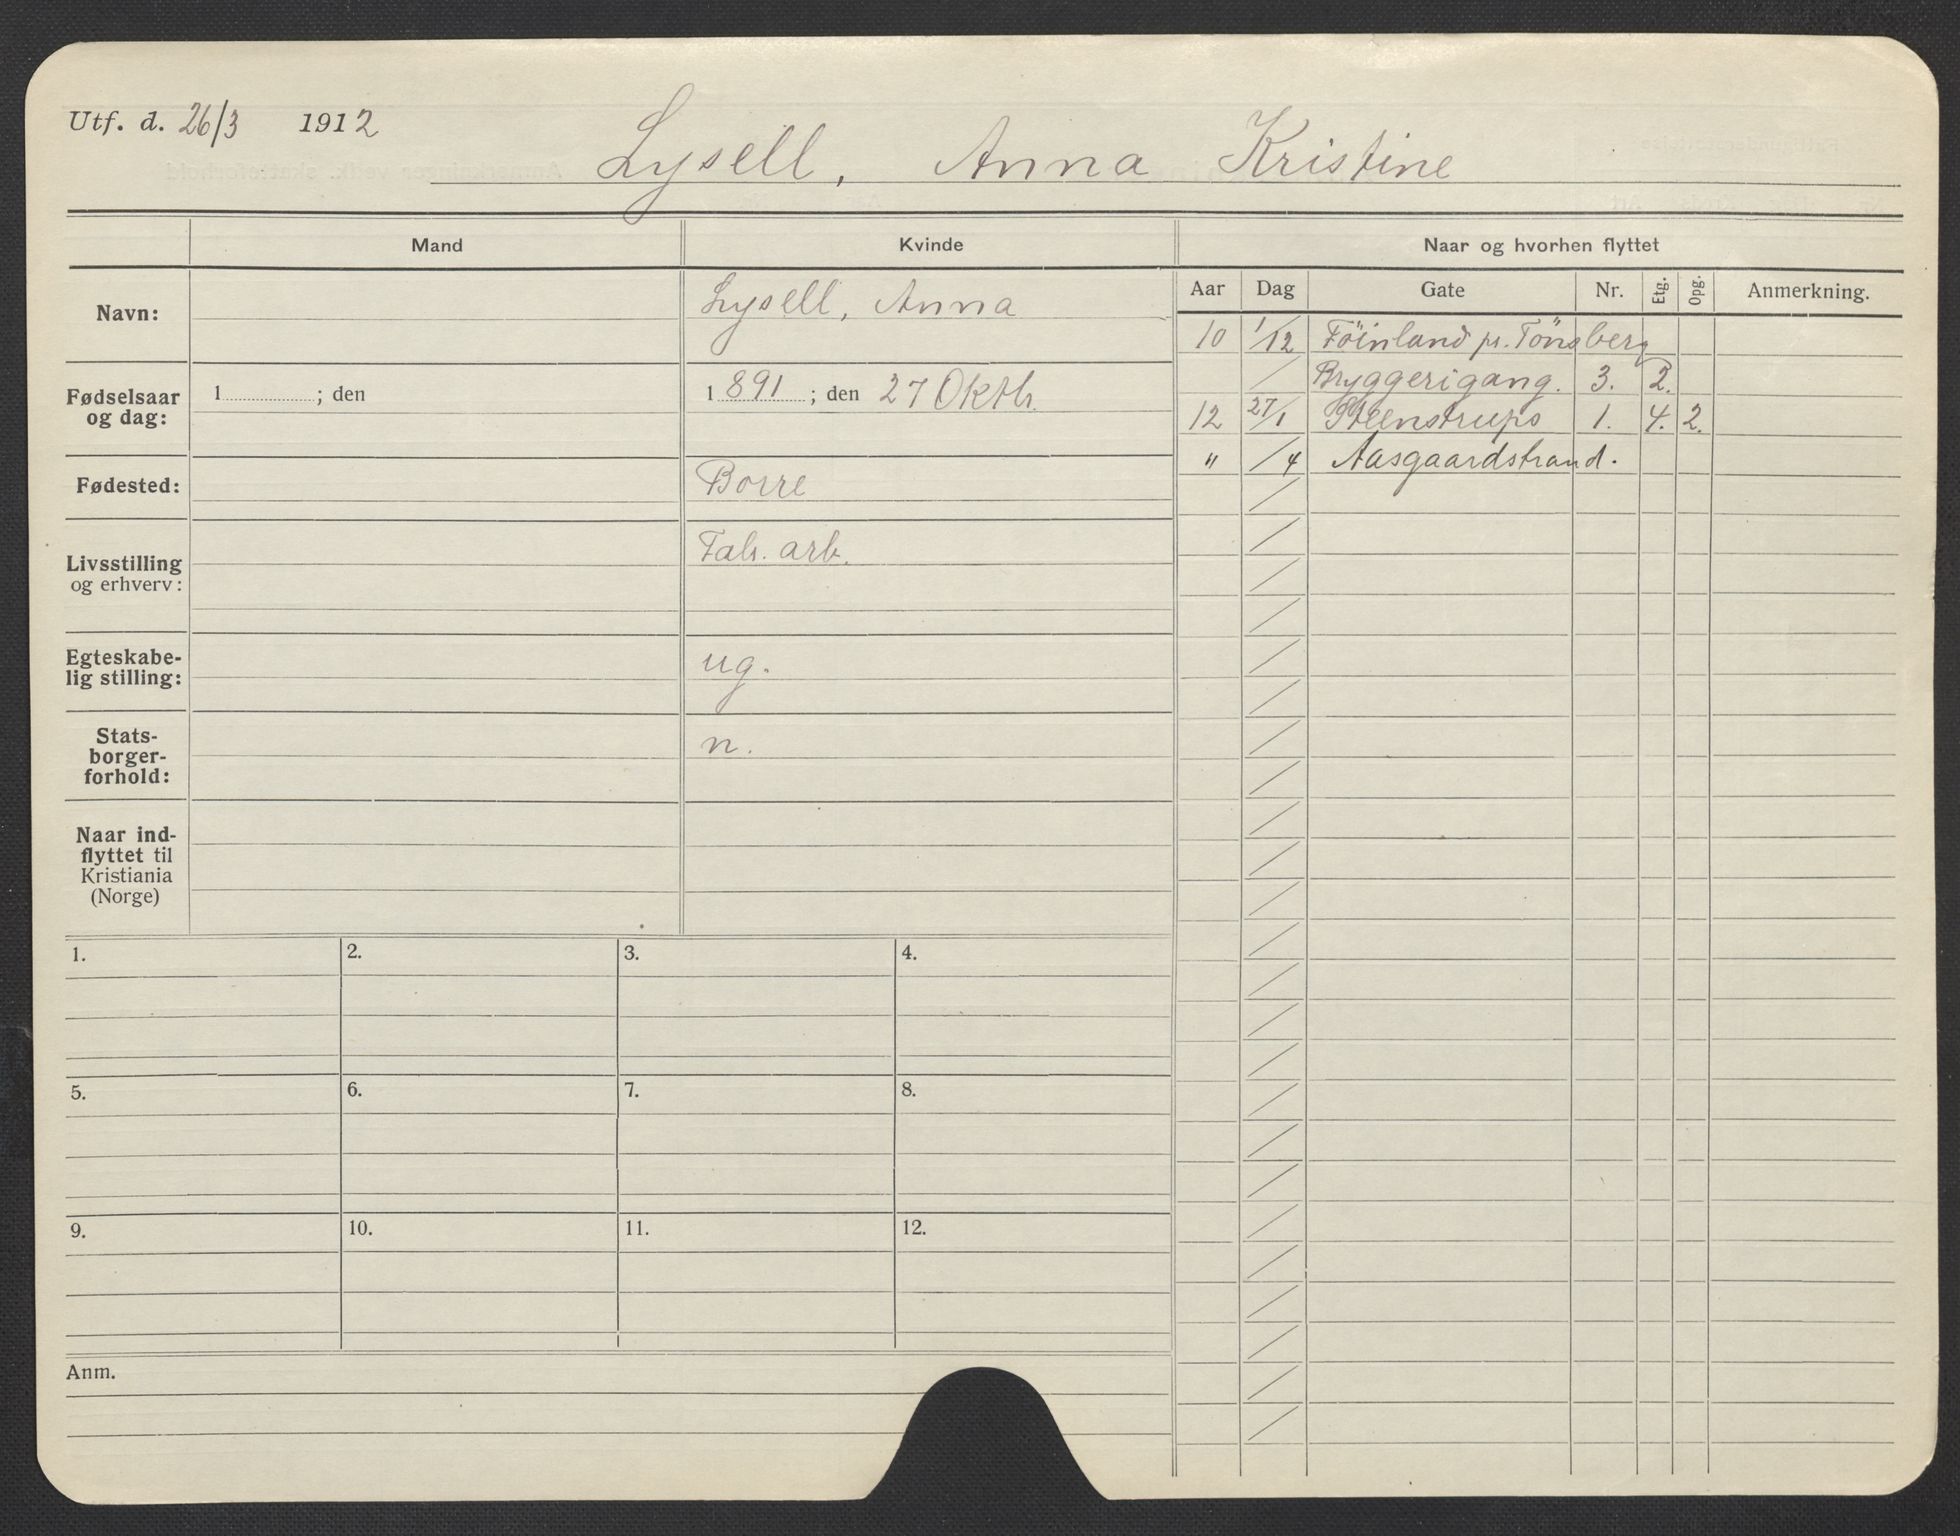 Utf. d. 26/3 1912
Lysell, Anna Kristine
Mand Kvinde Naar og hvorhen flyttet
Navn: Lysell, Anna
Fødselsaar og dag: 1 ; den 1891 ; den 27 Oktb.
Fødested: Borre
Livsstilling og erhverv: Fabr. arb.
Egteskabe-
lig stilling: ug.
Stats-
borger-
forhold: n.
Naar ind-
flyttet til
Kristiania
(Norge)
Aar Dag Gate Nr. Etg. Opg. Anmerkning.
10 1/12 Föinland pr. Tönsberg
/ Bryggerigang. 3. 2.
12 27/1 Steenstrups 1. 4. 2.
" /4 Aasgaardstrand.
1. 2. 3. 4.
5. 6. 7. 8.
9. 10. 11. 12.
Anm.